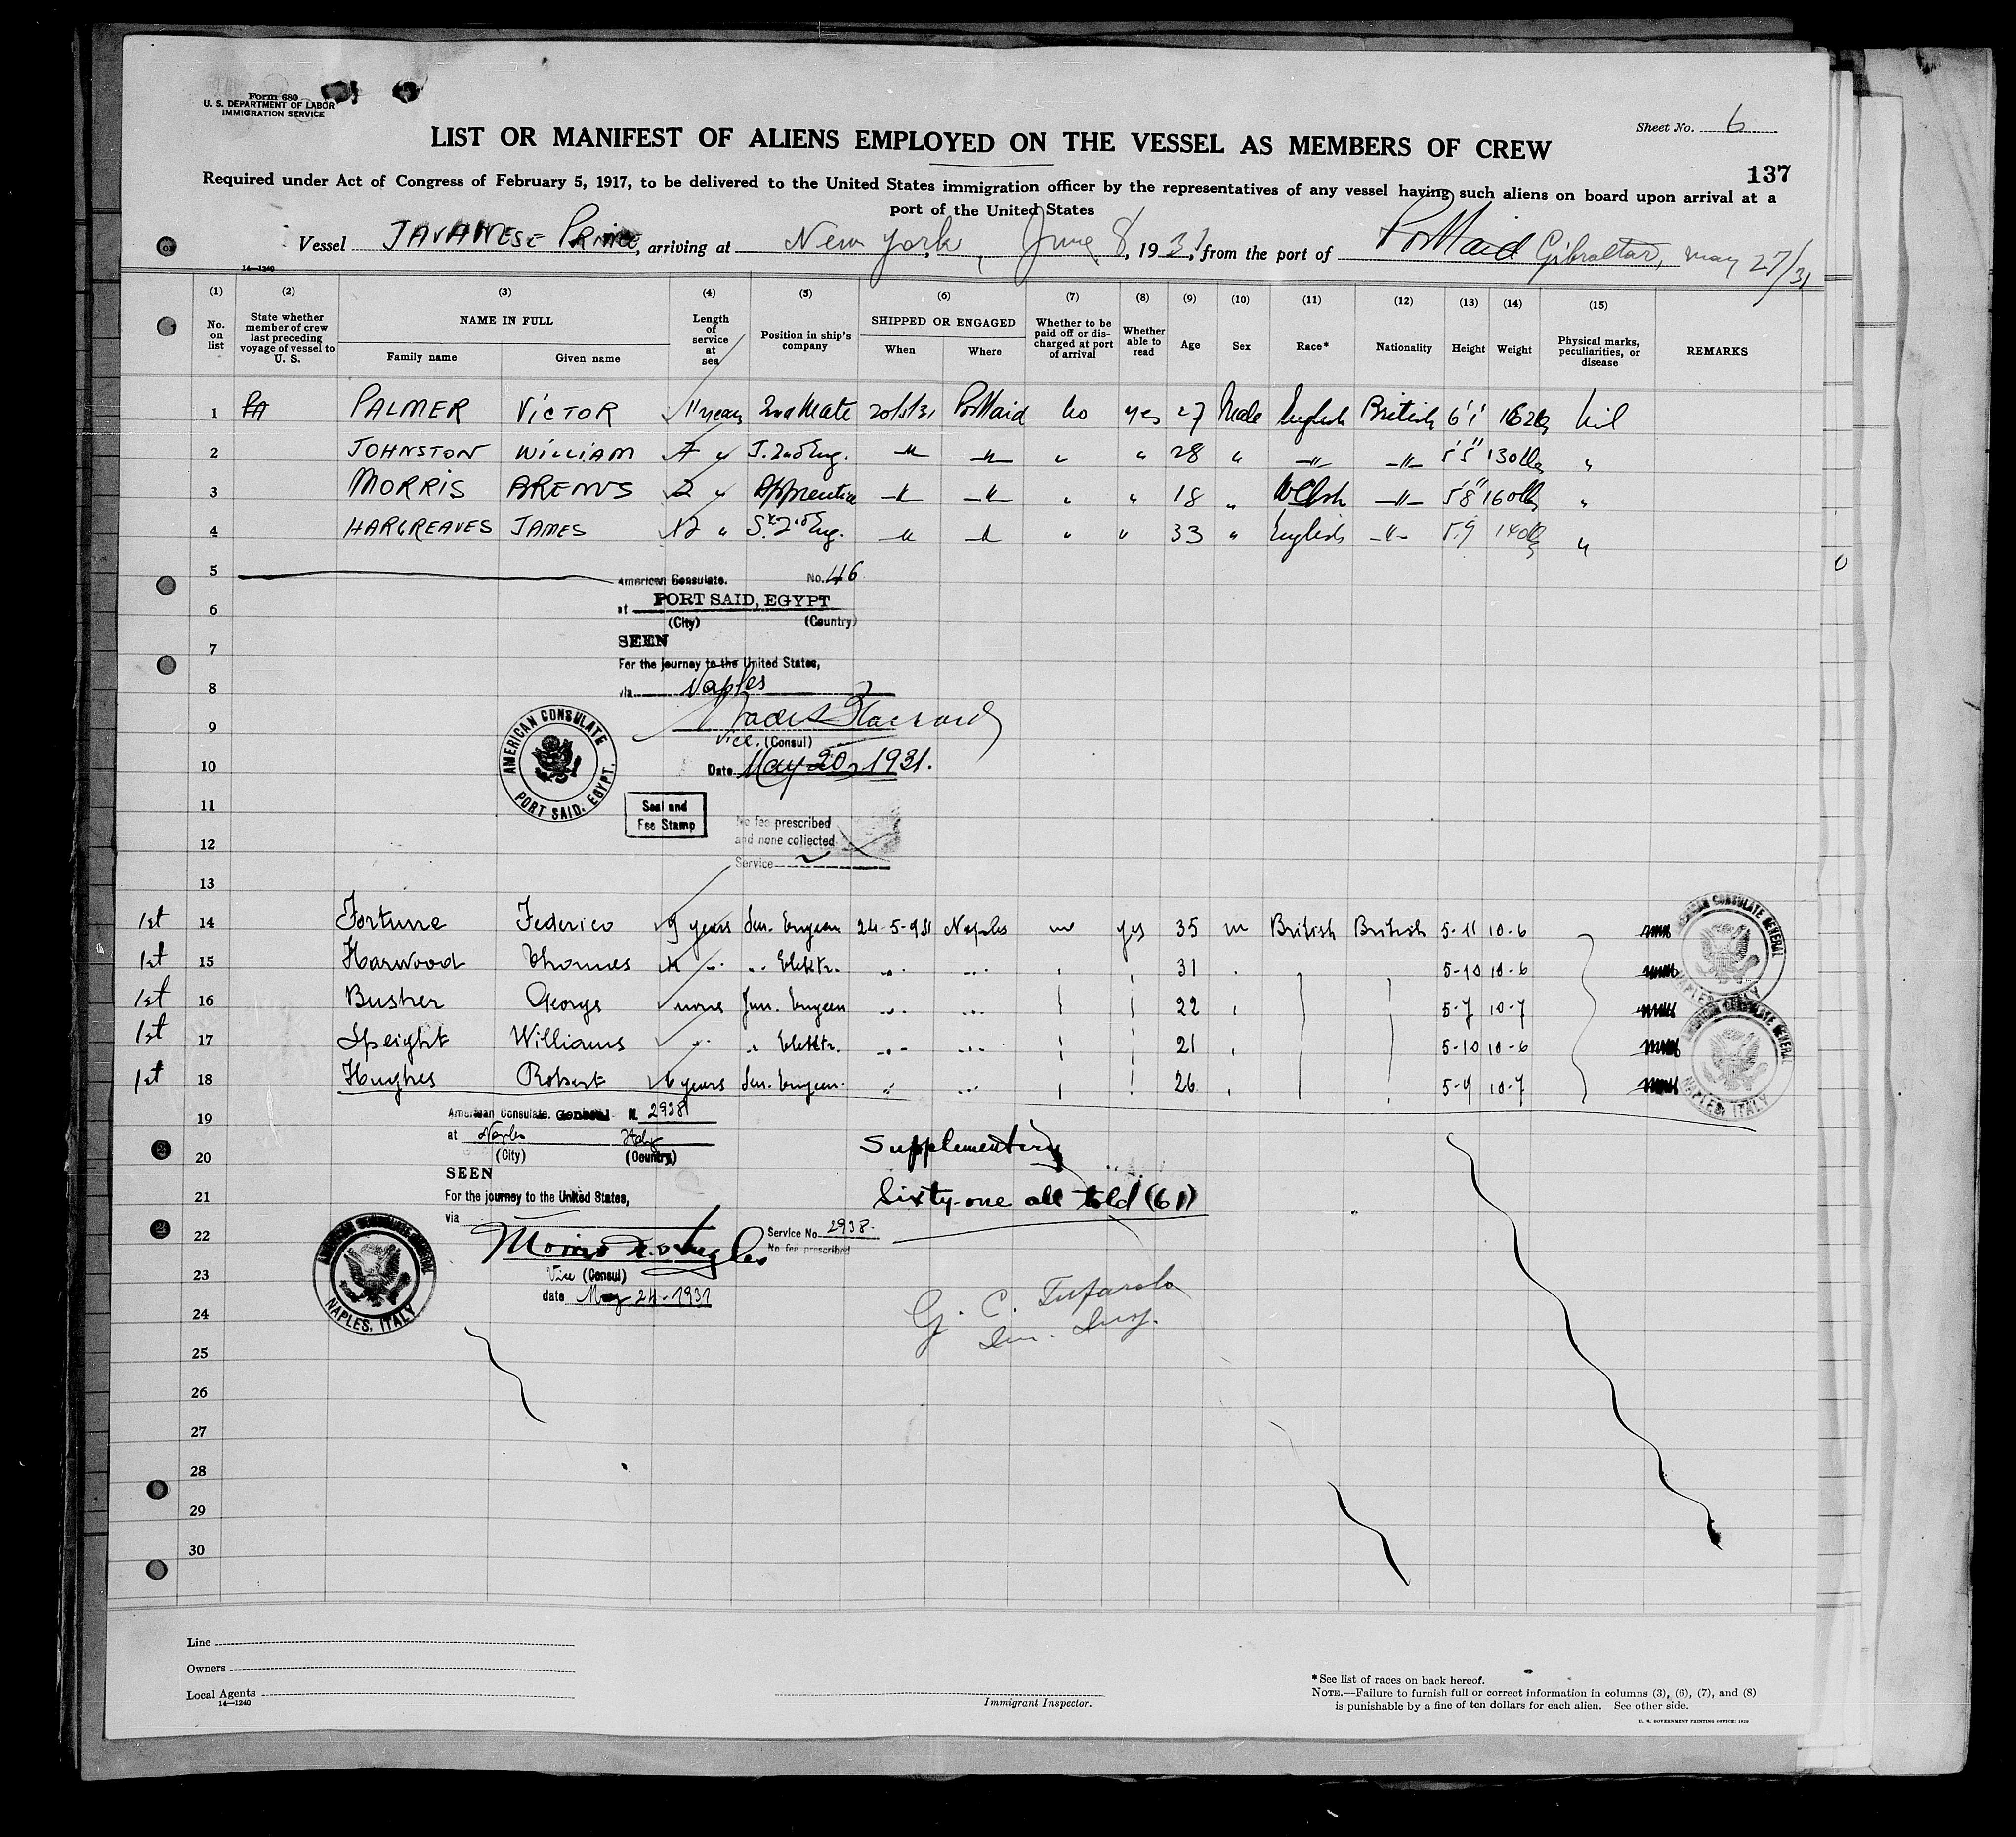 Form 680
U. S. DEPARTMENT OF LABOR
IMMIGRATION SERVICE
Sheet No. 6
LIST OR MANIFEST OF ALIENS EMPLOYED ON THE VESSEL AS MEMBERS OF CREW
137
Required under Act of Congress of February 5, 1917, to be delivered to the United States immigration officer by the representatives of any vessel having such aliens on board upon arrival at a
port of the United States
Vessel JAVANESE PRINCE, arriving at New York, June 8, 1931, from the port of Port Said Gibraltar, May 27/31
14—1240
(1) (2) (3) (4) (5) (6) (7) (8) (9) (10) (11) (12) (13) (14) (15)
No. on list
State whether member of crew last preceding voyage of vessel to U. S.
NAME IN FULL
Family name Given name
Length of service at sea
Position in ship's company
SHIPPED OR ENGAGED
When Where
Whether to be paid off or discharged at port of arrival
Whether able to read
Age Sex Race* Nationality Height Weight
Physical marks, peculiarities, or disease
REMARKS
1 PALMER VICTOR 11 years 2nd Mate 20/5/31 Port Said No yes 27 Male English British 6'1 162 lbs Nil
2 JOHNSTON WILLIAM 7 " J. 2nd Eng. -"- -"- " " 28 " -"- -"- 5'5" 130 lbs "
3 MORRIS 2 " Apprentice -"- -"- " " 18 " Welsh -"- 5'8" 160 lbs "
4 HARGREAVES JAMES 12 " Sr. 2nd Eng. -"- -"- " " 33 " English -"- 5.9 140 lbs "
5 American Consulate. No. 46
6 at PORT SAID, EGYPT
(City) (Country)
7 SEEN
For the journey to the United States,
8 via Naples
9
Vice (Consul)
10 Date May 20, 1931.
AMERICAN CONSULATE PORT SAID, EGYPT.
11 Seal and
Fee Stamp
No fee prescribed
12 and none collected
Service
13
1st 14 Fortune Federico 9 years Sen. Engeen 24-5-931 Naples no yes 35 m British British 5-11 10-6
1st 15 Harwood Thomas " " Elektr. " " 31 5-10 10-6
1st 16 Busher George none Jun. Engeen " " 22 5-7 10-7
1st 17 Speight Williams " " Elektr. " " 21 5-10 10-6
1st 18 Hughes Robert 6 years Sen. Engeen. " " 26 5-9 10-7
AMERICAN CONSULATE GENERAL NAPLES, ITALY
AMERICAN CONSULATE GENERAL NAPLES, ITALY
19 American Consulate General N. 2938
at Naples Italy
20 (City) (Country)
Supplementary
SEEN
21 For the journey to the United States,
Sixty-one all told (61)
via
22 Service No. 2938.
No fee prescribed
23 Vice (Consul)
date May 24-1931
AMERICAN CONSULATE GENERAL NAPLES, ITALY
24 G. C. Tufarolo
Im. Insp.
25
26
27
28
29
30
Line
Owners
Local Agents
14—1240
Immigrant Inspector.
*See list of races on back hereof.
NOTE.—Failure to furnish full or correct information in columns (3), (6), (7), and (8)
is punishable by a fine of ten dollars for each alien. See other side.
U. S. GOVERNMENT PRINTING OFFICE: 1929